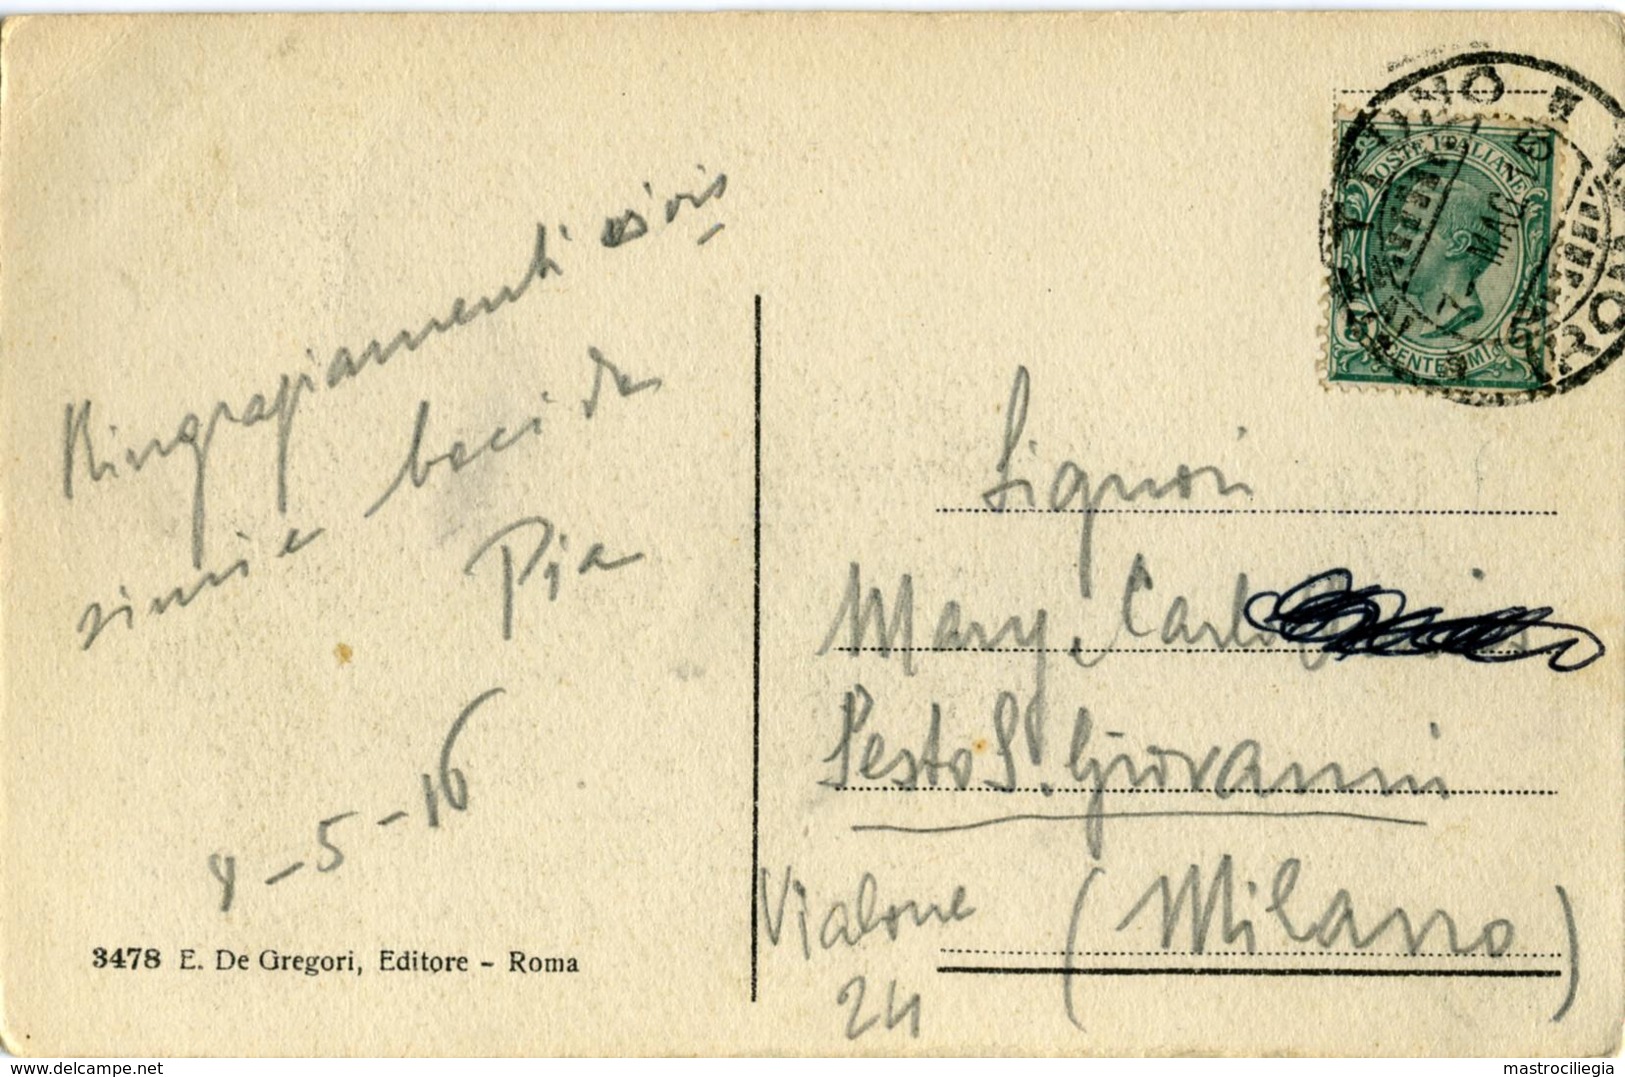 Ringraziamenti
simi e baci da
Pia
8-5-16
3478 E. De Gregori, Editore - Roma
POSTE ITALIANE
CENTESIMI
MAG
ROMA
Signori
Mary, Carlo
Sesto S. Giovanni
(Milano)
Vialone
24
www.delcampe.net
mastrociliegia